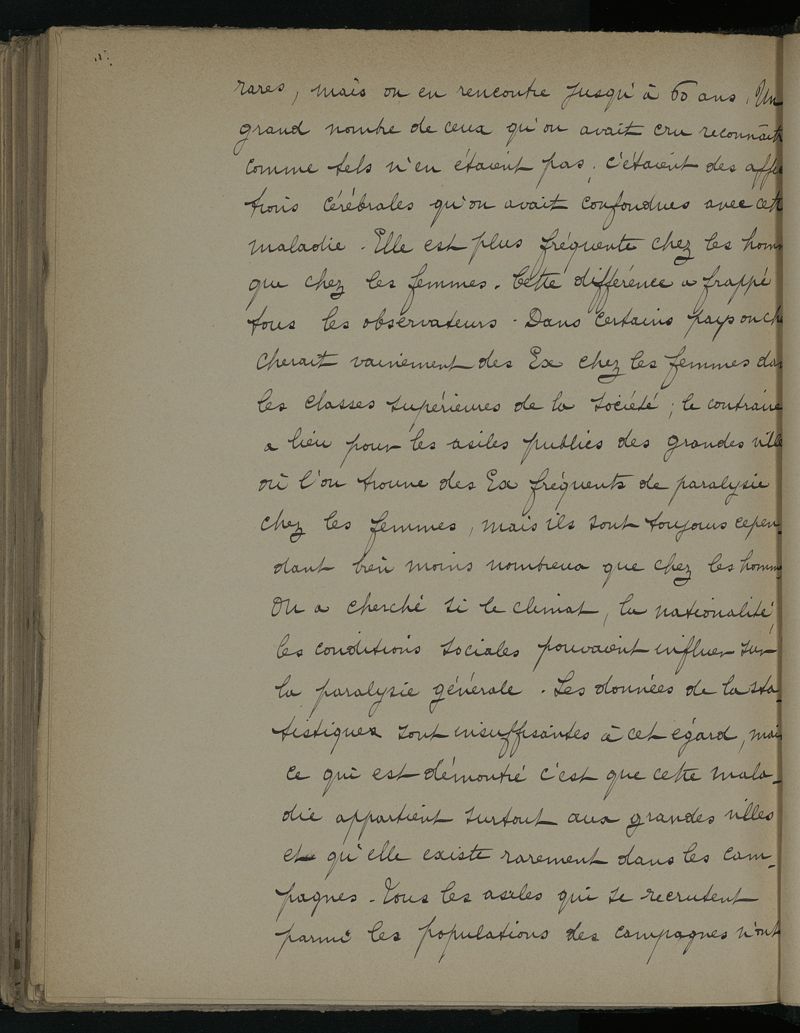 rares, mais on en rencontre jusqu'à 60 ans. Un
grand nombre de ceux qu'on avait cru reconnaîtr
comme tels n'en étaient pas. c'étaient des affec
tions cérébrales qu'on avait confondues avec cett
maladie. Elle est plus fréquente chez les homm
que chez les femmes. Cette différence a frappé
tous les observateurs. Dans certains pays on che
cherait vainement des Ex chez les femmes dan
les classes supérieures de la société; le contraire
a lieu pour les asiles publics des grandes ville
où l'on trouve des Ex fréquents de paralysie
chez les femmes, mais ils sont toujours cepen-
dant bien moins nombreux que chez les homme
On a cherché si le climat, la nationalité,
les conditions sociales pouvaient influer sur
la paralysie générale. Les données de la sta
tistiques sont insuffisantes à cet égard, mais
ce qui est démontré c'est que cette mala-
die appartient surtout aux grandes villes
et qu'elle existe rarement dans les cam-
pagnes. Tous les asiles qui se recrutent
parmi les populations des campagnes n'ont